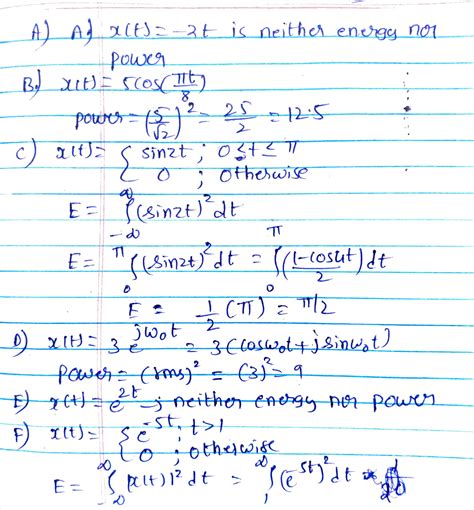 A) A) x(t) = -2t is neither energy nor
power
B) x(t) = 5cos(πt/8)
power = (5/√2)² = 25/2 = 12.5
C) x(t) = { sin2t ; 0≤t≤π
0 ; otherwise
E = ∫_{-∞}^{∞} (sin2t)² dt
E = ∫_{0}^{π} (sin2t)² dt = ∫_{0}^{π} ((1-cos4t)/2) dt
E = 1/2 (π) = π/2
D) x(t) = 3 e^{jω₀t} = 3(cosω₀t + jsinω₀t)
Power = (rms)² = (3)² = 9
E) x(t) = e^{2t} → neither energy nor power
F) x(t) = { e^{-5t} ; t>1
0 ; otherwise
E = ∫_{-∞}^{∞} |x(t)|² dt = ∫_{1}^{∞} (e^{-5t})² dt